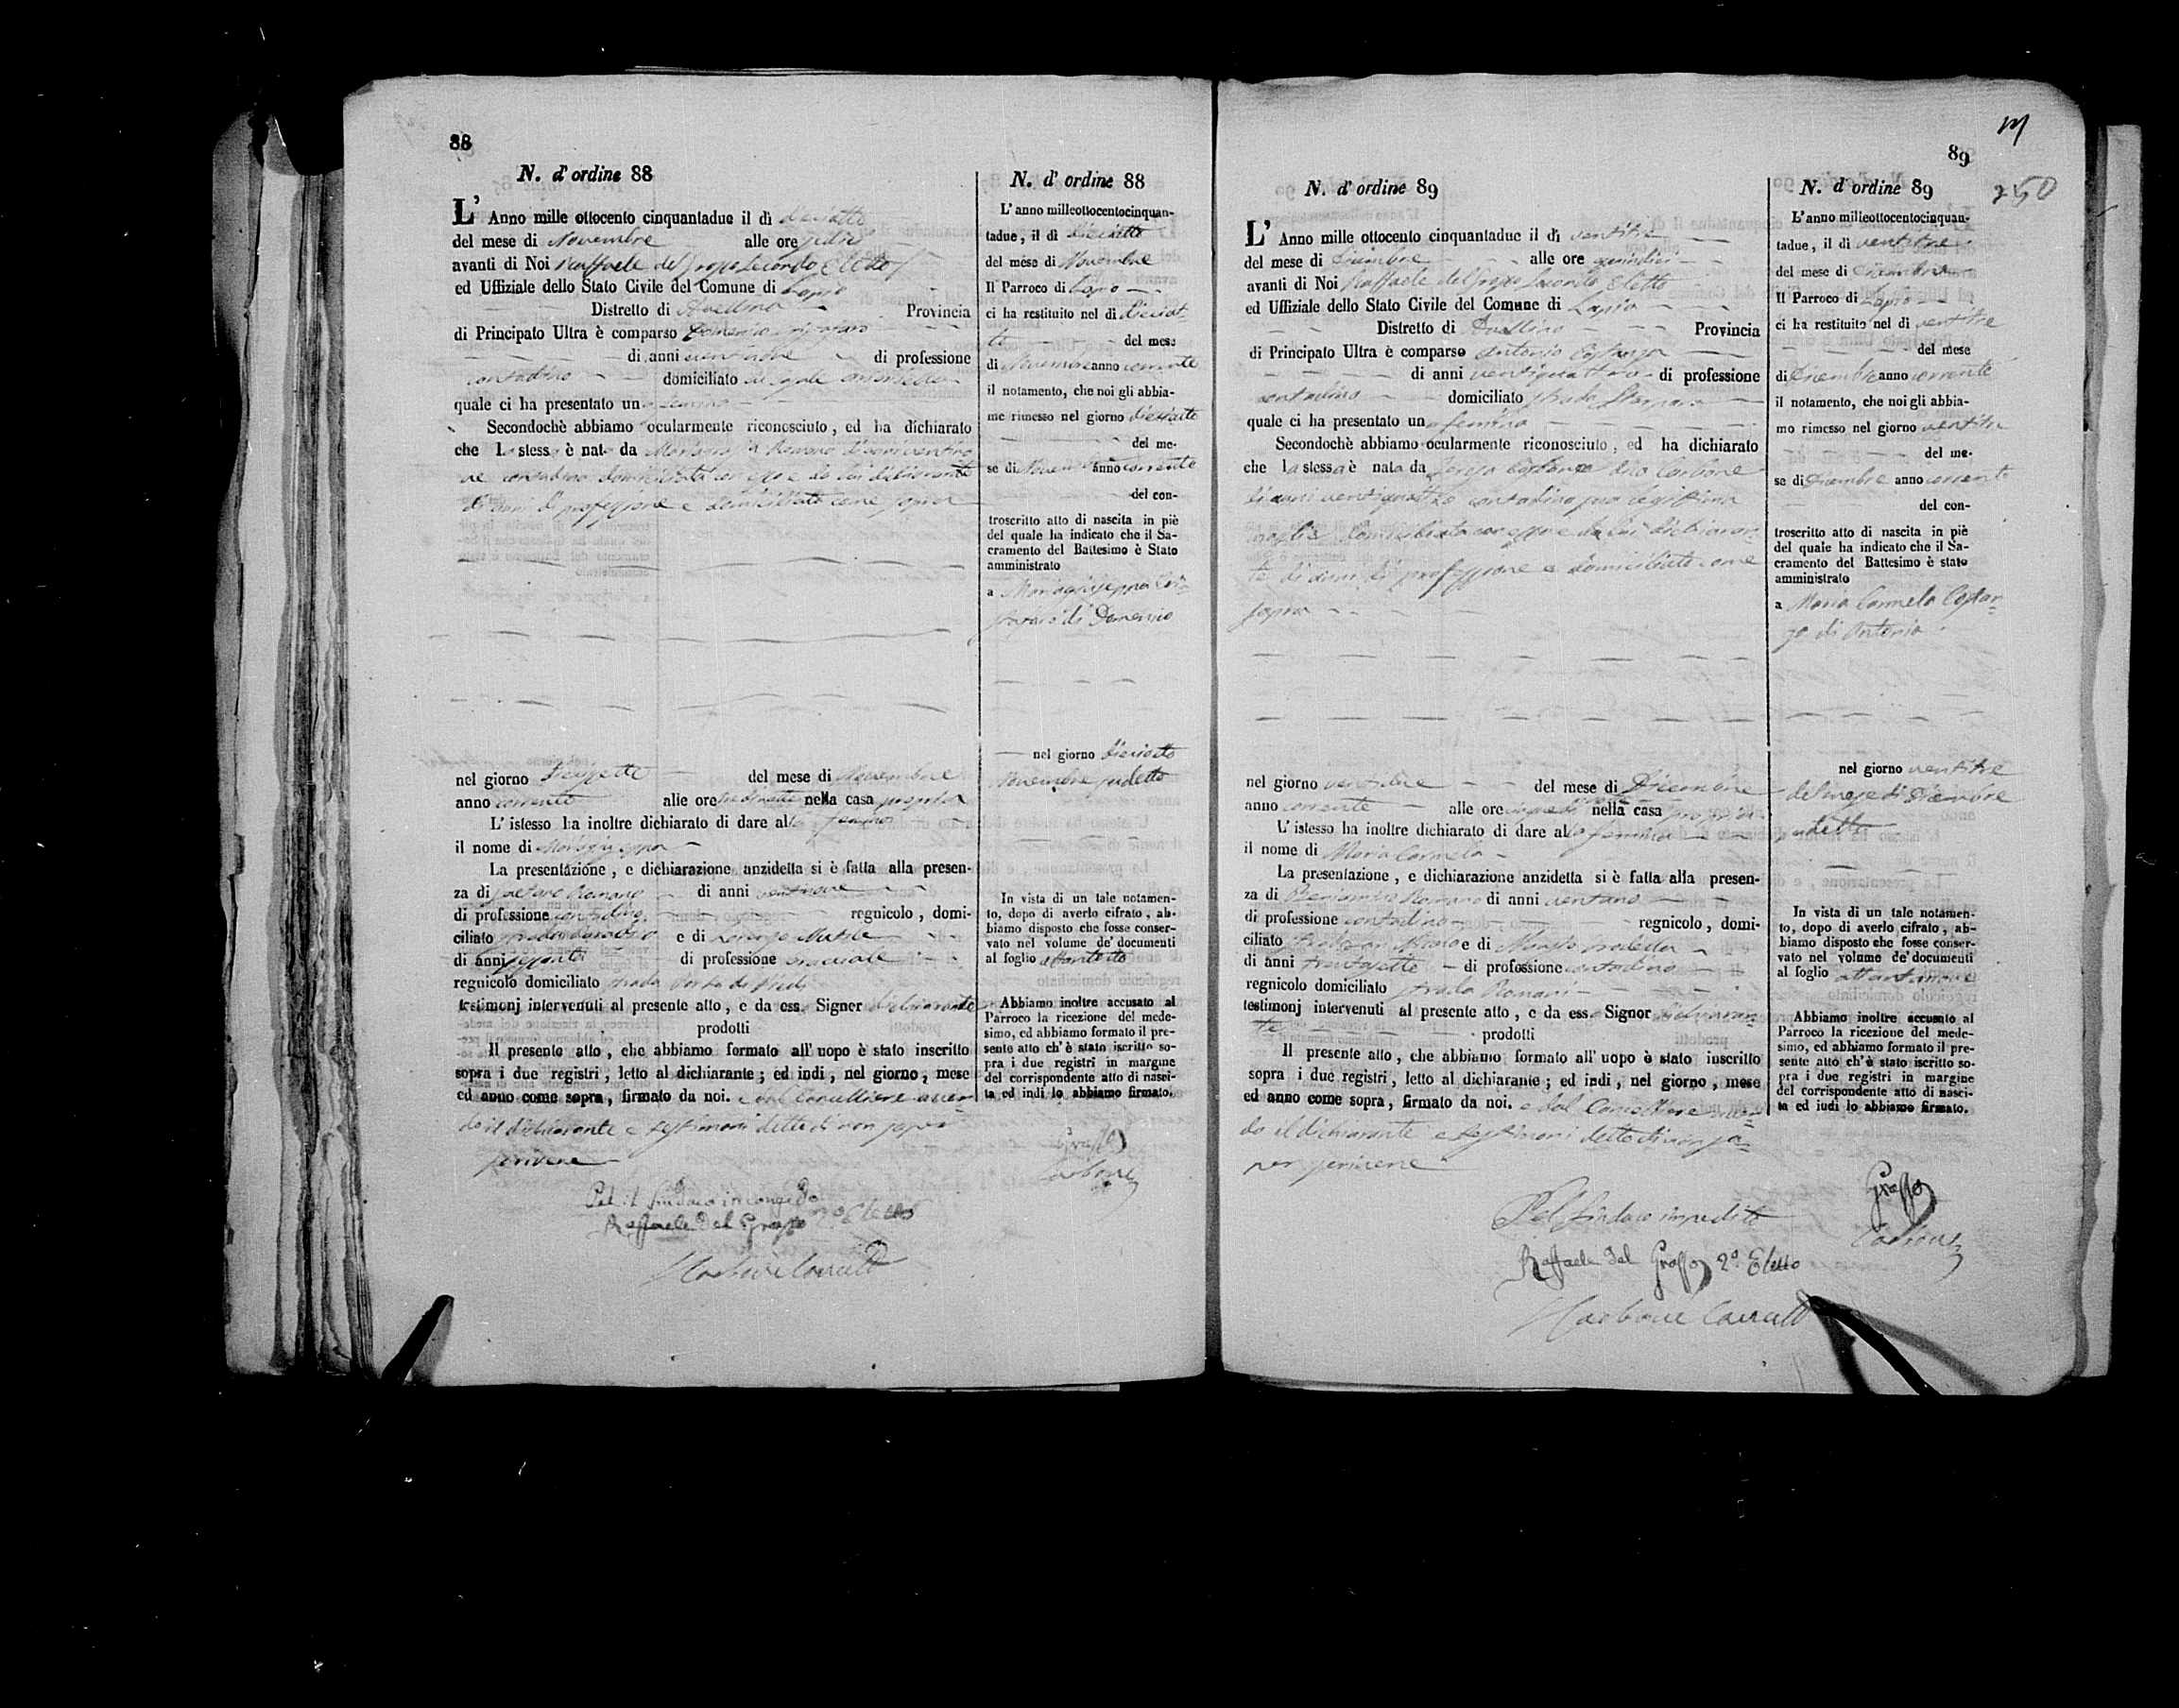 88
N. d' ordine 88
L' Anno mille ottocento cinquantadue il dì dieciotto
del mese di Novembre alle ore sedici
avanti di Noi Raffaele del Grosso Secondo Eletto
ed Uffiziale dello Stato Civile del Comune di Lapio
Distretto di Avellino Provincia
di Principato Ultra è comparso Domenico
di anni di professione
contadino domiciliato
quale ci ha presentato una femina
Secondochè abbiamo ocularmente riconosciuto, ed ha dichiarato
che la stessa è nata da Romano di anni
contadina domiciliata con esso e da lui dichiarante
di anni di professione e domiciliato come sopra
nel giorno del mese di Novembre
anno corrente alle ore nella casa propria
L' istesso ha inoltre dichiarato di dare alla femina
il nome di Mariagiuseppa
La presentazione, e dichiarazione anzidetta si è fatta alla presen-
za di Gaetano Romano di anni ventinove
di professione contadino regnicolo, domi-
ciliato strada e di Lorenzo
di anni sessanta di professione
regnicolo domiciliato strada
testimonj intervenuti al presente atto, e da ess. Signor dichiarante
prodotti
Il presente atto, che abbiamo formato all' uopo è stato inscritto
sopra i due registri, letto al dichiarante; ed indi, nel giorno, mese
ed anno come sopra, firmato da noi. e dal Cancelliere aven-
do il dichiarante e testimoni detto di non saper
scrivere
Pel il Sindaco in congedo
Raffaele del Grosso 2º Eletto
Carbone
N. d' ordine 88
L' anno milleottocentocinquan-
tadue, il dì dieciotto
del mese di Novembre
Il Parroco di Lapio
ci ha restituito nel dì dieciot-
to del mese
di Novembre anno corrente
il notamento, che noi gli abbia-
mo rimesso nel giorno dieciotto
del me-
se di Novembre anno corrente
del con-
troscritto atto di nascita in piè
del quale ha indicato che il Sa-
cramento del Battesimo è Stato
amministrato
a Mariagiuseppa
di Domenico
nel giorno dieciotto
Novembre sudetto
In vista di un tale notamen-
to, dopo di averlo cifrato, ab-
biamo disposto che fosse conser-
vato nel volume de' documenti
al foglio ottantotto
Abbiamo inoltre accusato al
Parroco la ricezione del mede-
simo, ed abbiamo formato il pre-
sente atto ch' è stato iscritto so-
pra i due registri in margine
del corrispondente atto di nasci-
ta ed indi lo abbiamo firmato.
Grosso
Carbone
89
250
N. d' ordine 89
L' Anno mille ottocento cinquantadue il dì ventitre
del mese di Dicembre alle ore quindici
avanti di Noi Raffaele del Grosso Secondo Eletto
ed Uffiziale dello Stato Civile del Comune di Lapio
Distretto di Avellino Provincia
di Principato Ultra è comparso Antonio Costanza
di anni ventiquattro di professione
contadino domiciliato strada
quale ci ha presentato una femina
Secondochè abbiamo ocularmente riconosciuto, ed ha dichiarato
che la stessa è nata da Costanza Carbone
di anni ventiquattro contadina sua legittima
moglie domiciliata con esso e da lui dichiaran-
te di anni di professione e domiciliato come
sopra
nel giorno ventidue del mese di Dicembre
anno corrente alle ore nella casa propria
L' istesso ha inoltre dichiarato di dare alla femina
il nome di Maria Carmela
La presentazione, e dichiarazione anzidetta si è fatta alla presen-
za di Beniamino Romano di anni ventuno
di professione contadino regnicolo, domi-
ciliato e di
di anni trentasette di professione contadino
regnicolo domiciliato strada Romani
testimonj intervenuti al presente atto, e da ess. Signor dichiaran-
te prodotti
Il presente atto, che abbiamo formato all' uopo è stato inscritto
sopra i due registri, letto al dichiarante; ed indi, nel giorno, mese
ed anno come sopra, firmato da noi. e dal Cancelliere aven-
do il dichiarante e testimoni detto di non sa-
per scrivere
Pel Sindaco impedito
Raffaele del Grosso 2º Eletto
Carbone
N. d' ordine 89
L' anno milleottocentocinquan-
tadue, il dì ventitre
del mese di Dicembre
Il Parroco di Lapio
ci ha restituito nel dì ventitre
del mese
di Dicembre anno corrente
il notamento, che noi gli abbia-
mo rimesso nel giorno ventitre
del me-
se di Dicembre anno corrente
del con-
troscritto atto di nascita in piè
del quale ha indicato che il Sa-
cramento del Battesimo è stato
amministrato
a Maria Carmela Costan-
za di Antonio
nel giorno ventitre
del mese di Dicembre
detto
In vista di un tale notamen-
to, dopo di averlo cifrato, ab-
biamo disposto che fosse conser-
vato nel volume de' documenti
al foglio ottantanove
Abbiamo inoltre accusato al
Parroco la ricezione del mede-
simo, ed abbiamo formato il pre-
sente atto ch' è stato iscritto so-
pra i due registri in margine
del corrispondente atto di nasci-
ta ed indi lo abbiamo firmato.
Grosso
Carbone